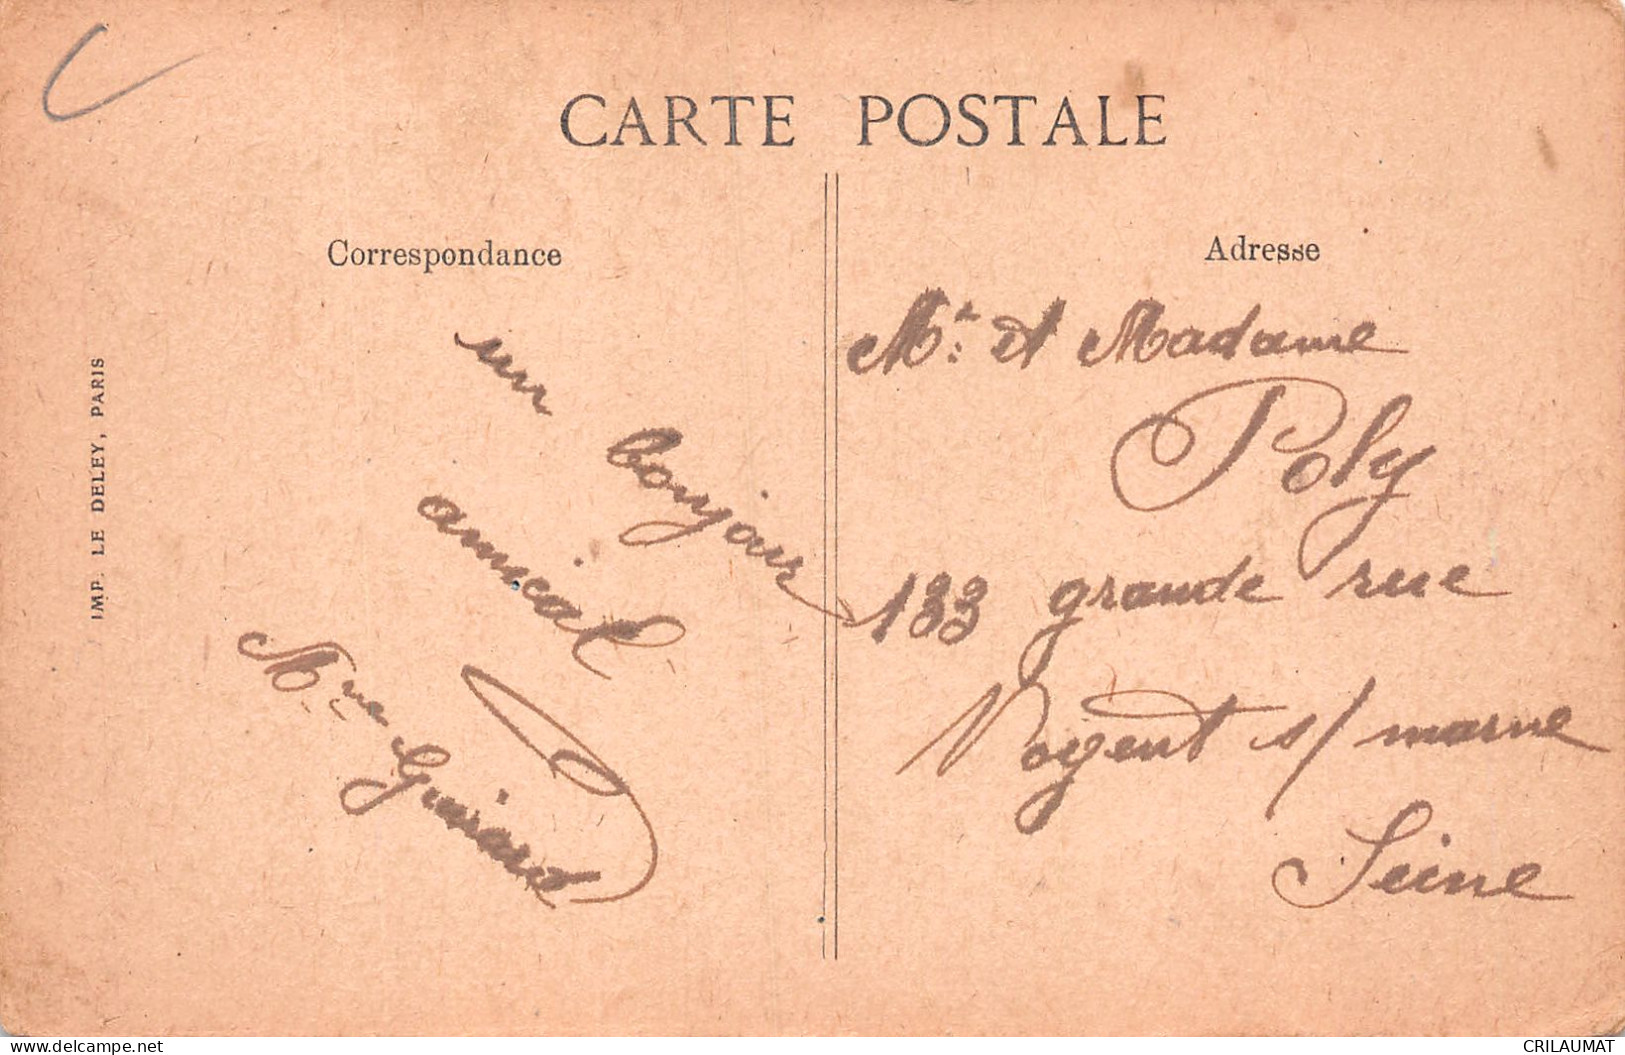 CARTE POSTALE
Correspondance
un bonjour
amical
Mme Guirard
IMP. LE DELEY, PARIS
Adresse
Mr et Madame
Poly
133 grande rue
Nogent s/ marne
Seine
delcampe.net
CRILAUMAT